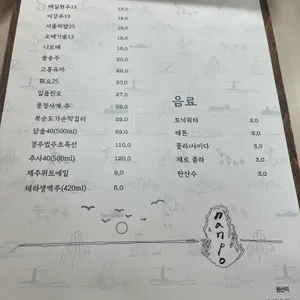 매실원주13 18,0
이강주19 18,0
서울의밤25 18,0
오매기술13 19,0
니모메 19,0
솔송주 20,0
고흥유자 28,0
화요25 27,0
일품진로 27,0
풍정사계 주
복순도가손막걸리 29,0
담솔40(500ml) 59,0
경주법주초특선 110,0
추사40(500ml) 120,0
제주위트에일 9,0
테라생맥주(420ml) 5,0
음료
토닉워터 2,0
레몬 2,0
콜라/사이다 3,0
제로 콜라 3,0
탄산수 3,0
nanpo
원산지